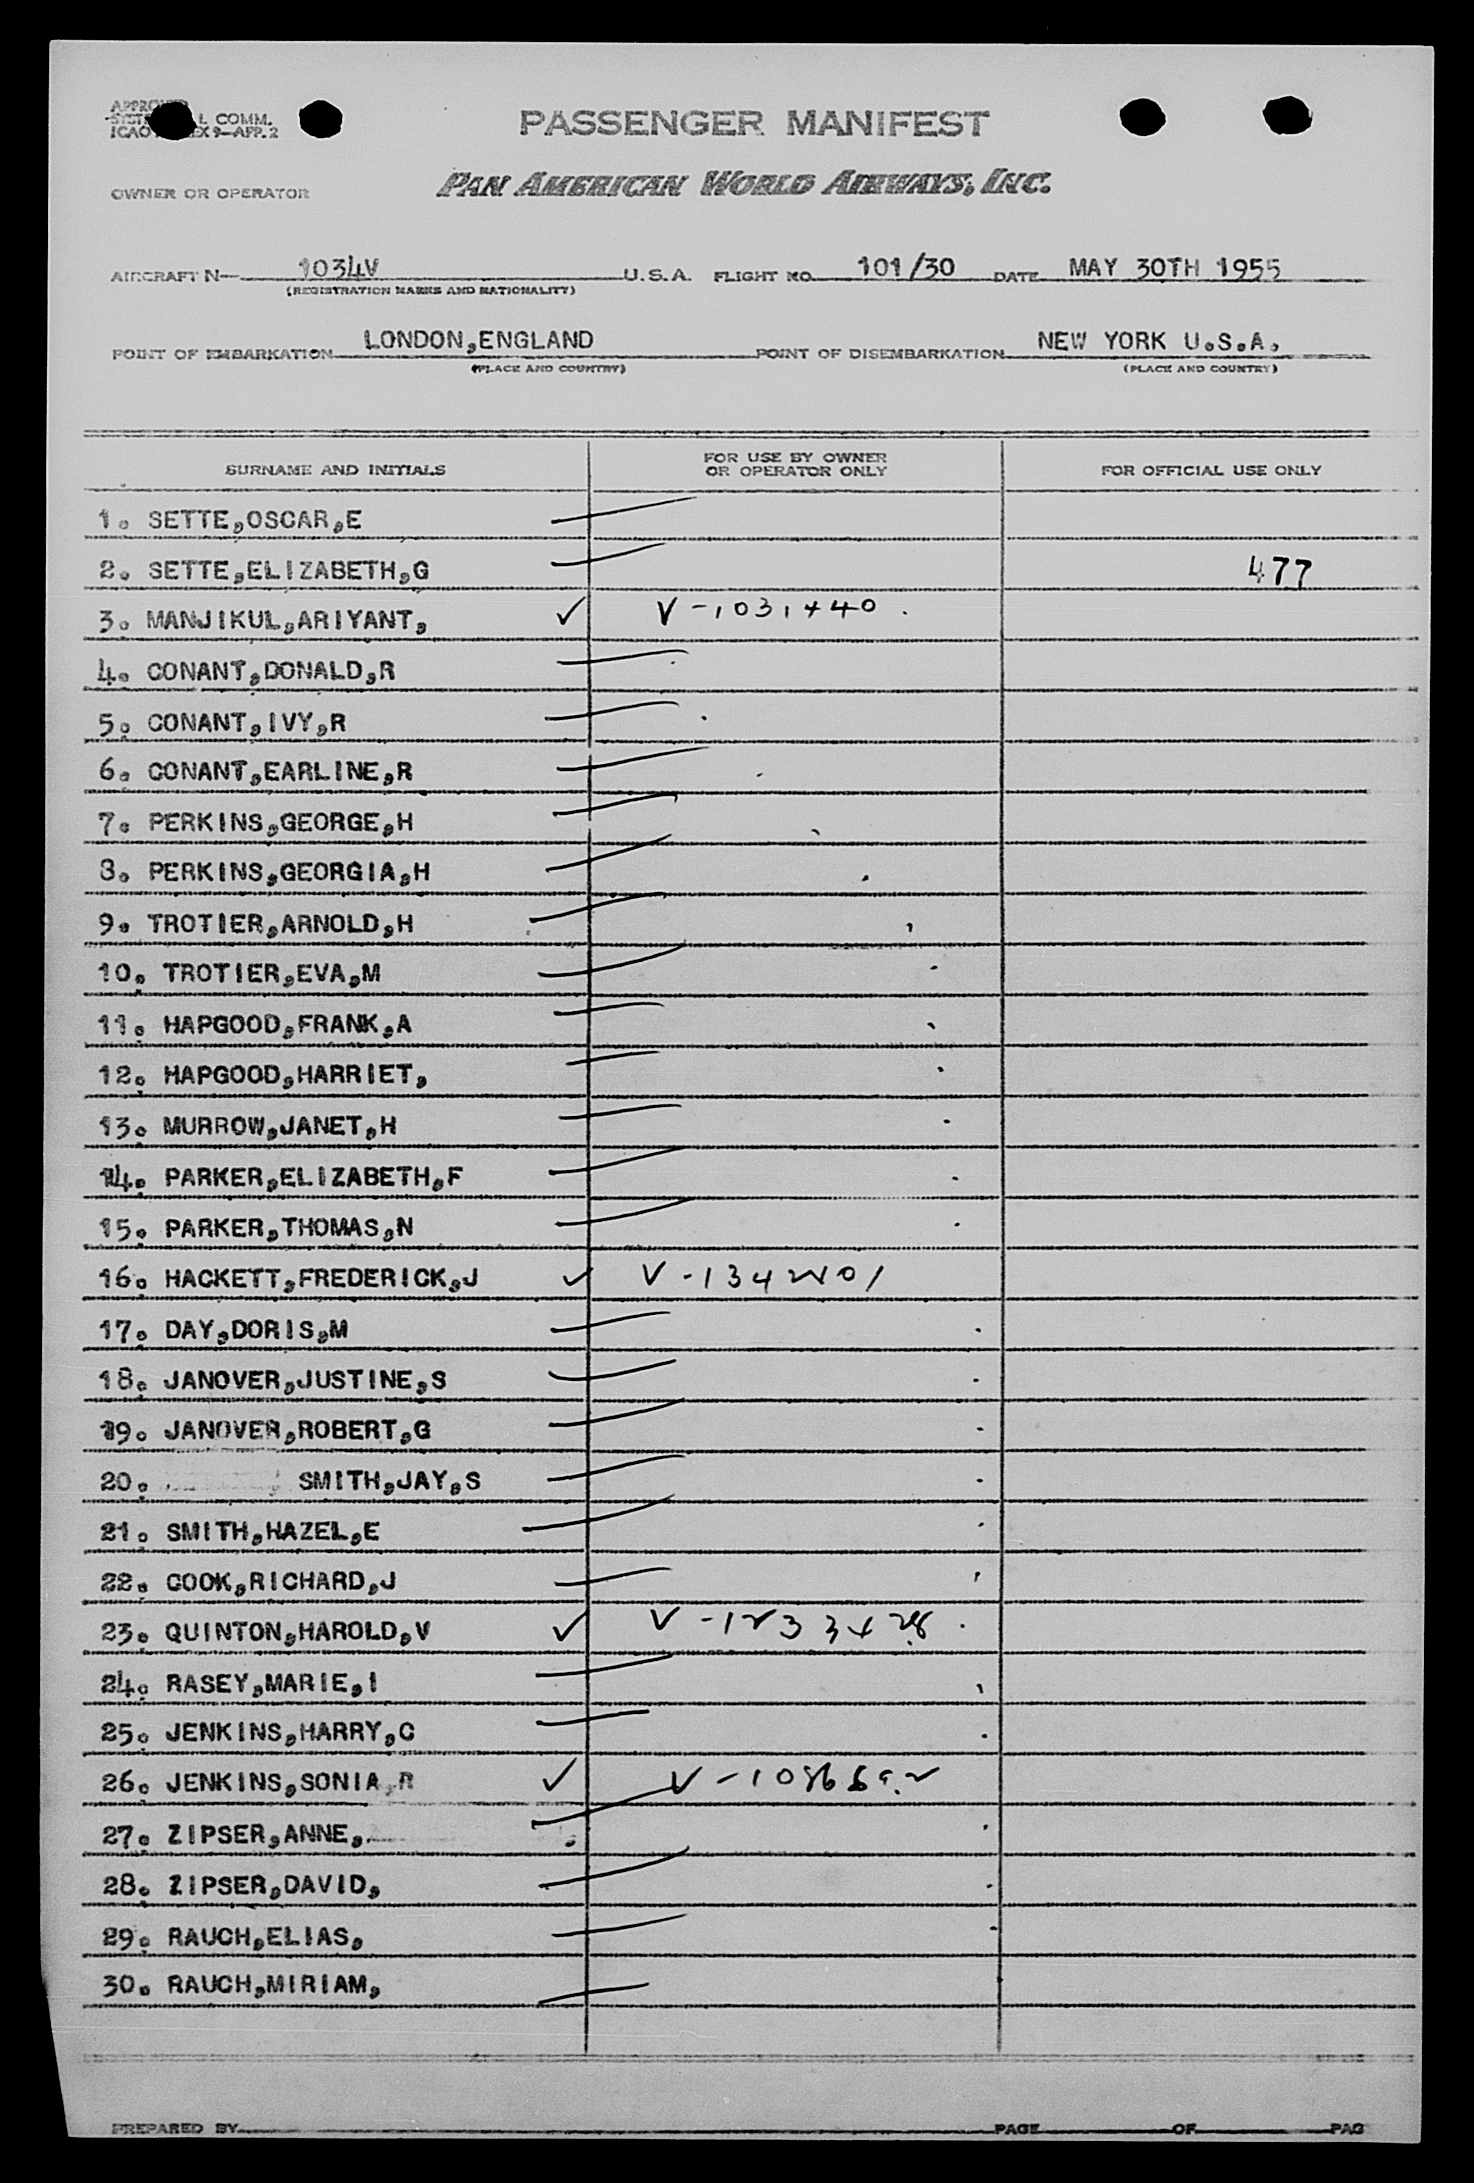 APPROVED
L COMM.
ICAO EX 9-APP. 2
PASSENGER MANIFEST
OWNER OR OPERATOR PAN AMERICAN WORLD AIRWAYS, INC.
AIRCRAFT N- 1034V U.S.A. FLIGHT NO. 101/30 DATE MAY 30TH 1955
(REGISTRATION MARKS AND NATIONALITY)
POINT OF EMBARKATION LONDON,ENGLAND POINT OF DISEMBARKATION NEW YORK U.S.A.
(PLACE AND COUNTRY) (PLACE AND COUNTRY)
SURNAME AND INITIALS FOR USE BY OWNER OR OPERATOR ONLY FOR OFFICIAL USE ONLY
1. SETTE,OSCAR,E
2. SETTE,ELIZABETH,G 477
3. MANJIKUL,ARIYANT, ✓ V-1031440
4. CONANT,DONALD,R
5. CONANT,IVY,R
6. CONANT,EARLINE,R
7. PERKINS,GEORGE,H
8. PERKINS,GEORGIA,H
9. TROTIER,ARNOLD,H
10. TROTIER,EVA,M
11. HAPGOOD,FRANK,A
12. HAPGOOD,HARRIET,
13. MURROW,JANET,H
14. PARKER,ELIZABETH,F
15. PARKER,THOMAS,N
16. HACKETT,FREDERICK,J ✓ V-1342401
17. DAY,DORIS,M
18. JANOVER,JUSTINE,S
19. JANOVER,ROBERT,G
20. SMITH,JAY,S
21. SMITH,HAZEL,E
22. COOK,RICHARD,J
23. QUINTON,HAROLD,V ✓
24. RASEY,MARIE,I
25. JENKINS,HARRY,C
26. JENKINS,SONIA,R ✓
27. ZIPSER,ANNE,
28. ZIPSER,DAVID,
29. RAUCH,ELIAS,
30. RAUCH,MIRIAM,
PREPARED BY PAGE OF PAG